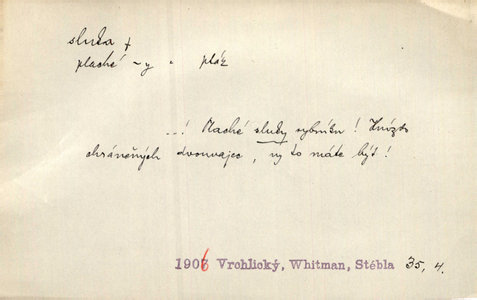 sluka f
plaché ~y " pták
...! Plaché sluky rybníku! Hnízdo
chráněných dvouvajec, vy to máte být!
1906 Vrchlický, Whitman, Stébla 35, 4.